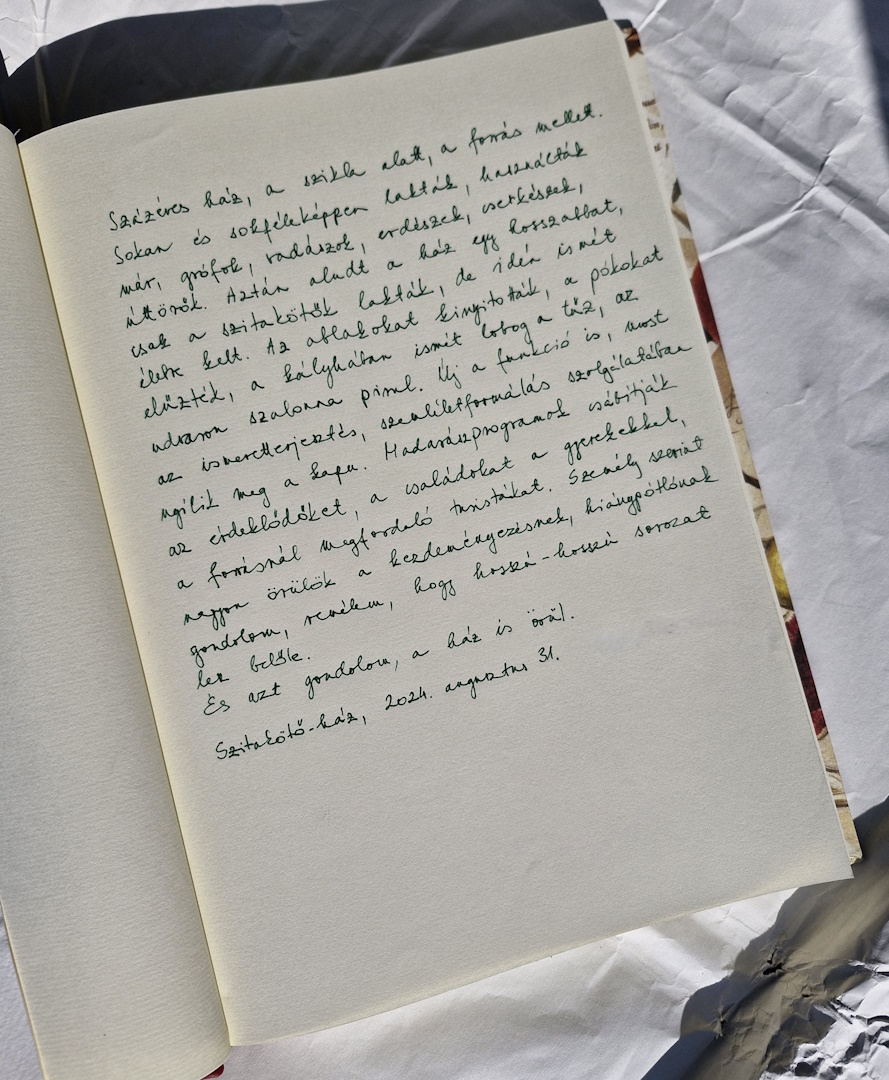 Százéves ház, a szikla alatt, a forrás mellett.
Sokan és sokféleképpen lakták, használták
már, grófok, vadászok, erdészek, cserkészek,
úttörők. Aztán aludt a ház egy hosszabbat,
csak a szitakötők lakták, de idén ismét
életre kelt. Az ablakokat kinyitották, a pókokat
elűzték, a kályhában ismét lobog a tűz, az
udvaron szalonna pirul. Új a funkció is, most
az ismeretterjesztés, szemléletformálás szolgálatában
nyílik meg a kapu. Madarászprogramok csábítják
az érdeklődőket, a családokat a gyerekekkel,
a forrásnál megforduló turistákat. Személy szerint
nagyon örülök a kezdeményezésnek, hiánypótlónak
gondolom, remélem, hogy hosszú-hosszú sorozat
lesz belőle.
És azt gondolom, a ház is örül.
Szitakötő-ház, 2024. augusztus 31.